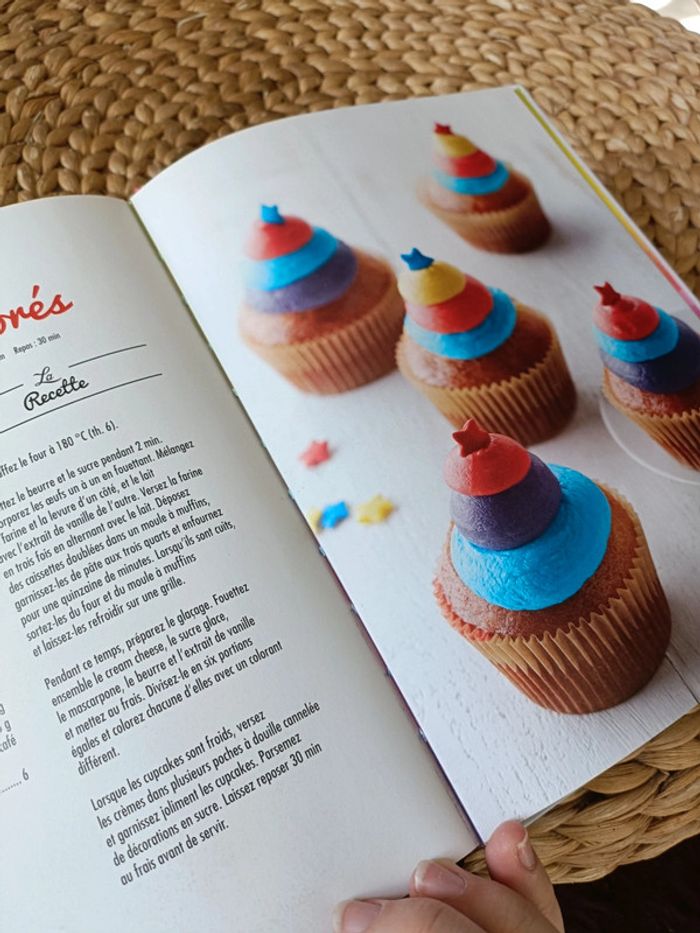 Repos : 30 min
La
Recette
le four à 180 °C (th. 6).
le beurre et le sucre pendant 2 min.
les œufs un à un en fouettant. Mélangez
farine et la levure d'un côté, et le lait
avec l'extrait de vanille de l'autre. Versez la farine
en trois fois en alternant avec le lait. Déposez
des caissettes doublées dans un moule à muffins,
garnissez-les de pâte aux trois quarts et enfournez
pour une quinzaine de minutes. Lorsqu'ils sont cuits,
sortez-les du four et du moule à muffins
et laissez-les refroidir sur une grille.
Pendant ce temps, préparez le glaçage. Fouettez
ensemble le cream cheese, le sucre glace,
le mascarpone, le beurre et l'extrait de vanille
et mettez au frais. Divisez-le en six portions
égales et colorez chacune d'elles avec un colorant
différent.
g
café
6
Lorsque les cupcakes sont froids, versez
les crèmes dans plusieurs poches à douille cannelée
et garnissez joliment les cupcakes. Parsemez
de décorations en sucre. Laissez reposer 30 min
au frais avant de servir.